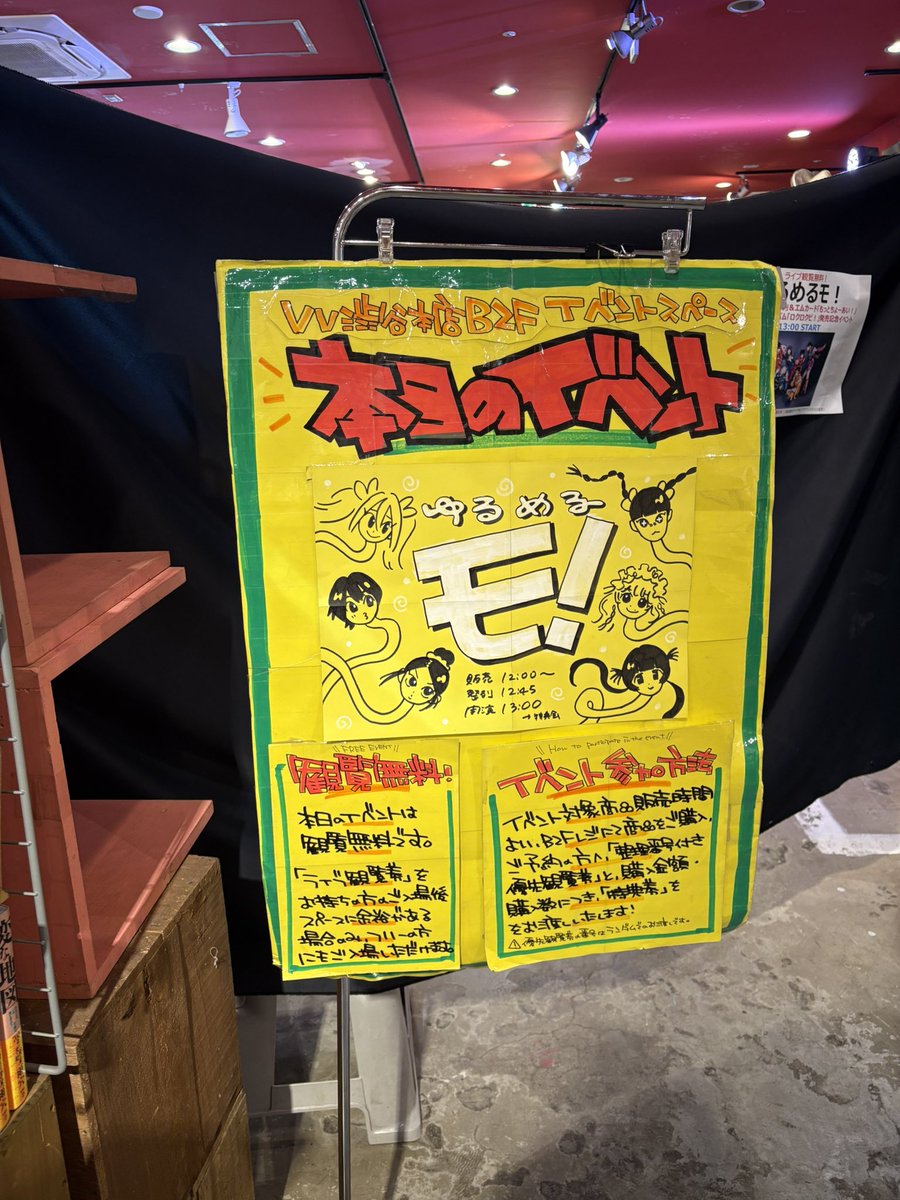 VV渋谷本店B2F イベントスペース
本日のイベント
ゆるめる
モ!
販売 12:00〜
整列 12:45
開演 13:00
→特典会
\\FREE EVENT//
観覧無料!
本日のイベントは
観覧無料です。
「ライブ観覧券」を
お持ちの方のご入場後
スペースに余裕がある
場合のみ、フリーの方
にもご入場いただけます。
\\ How to participate in the event //
イベント参加方法
イベント対象商品販売時間
より、B2Fレジにて商品をご購入、
ご予約の方へ、「整理番号付き
優先観覧券」と、購入金額・
購入数につき、「特典券」を
をお渡しいたします!
⚠優先観覧券の番号はランダムでのお渡しです。
ライブ観覧無料!
るめるモ!
&エムカード「もっとちょーあい!」
「ロクロクビ!」発売記念イベント
13:00 START
地図